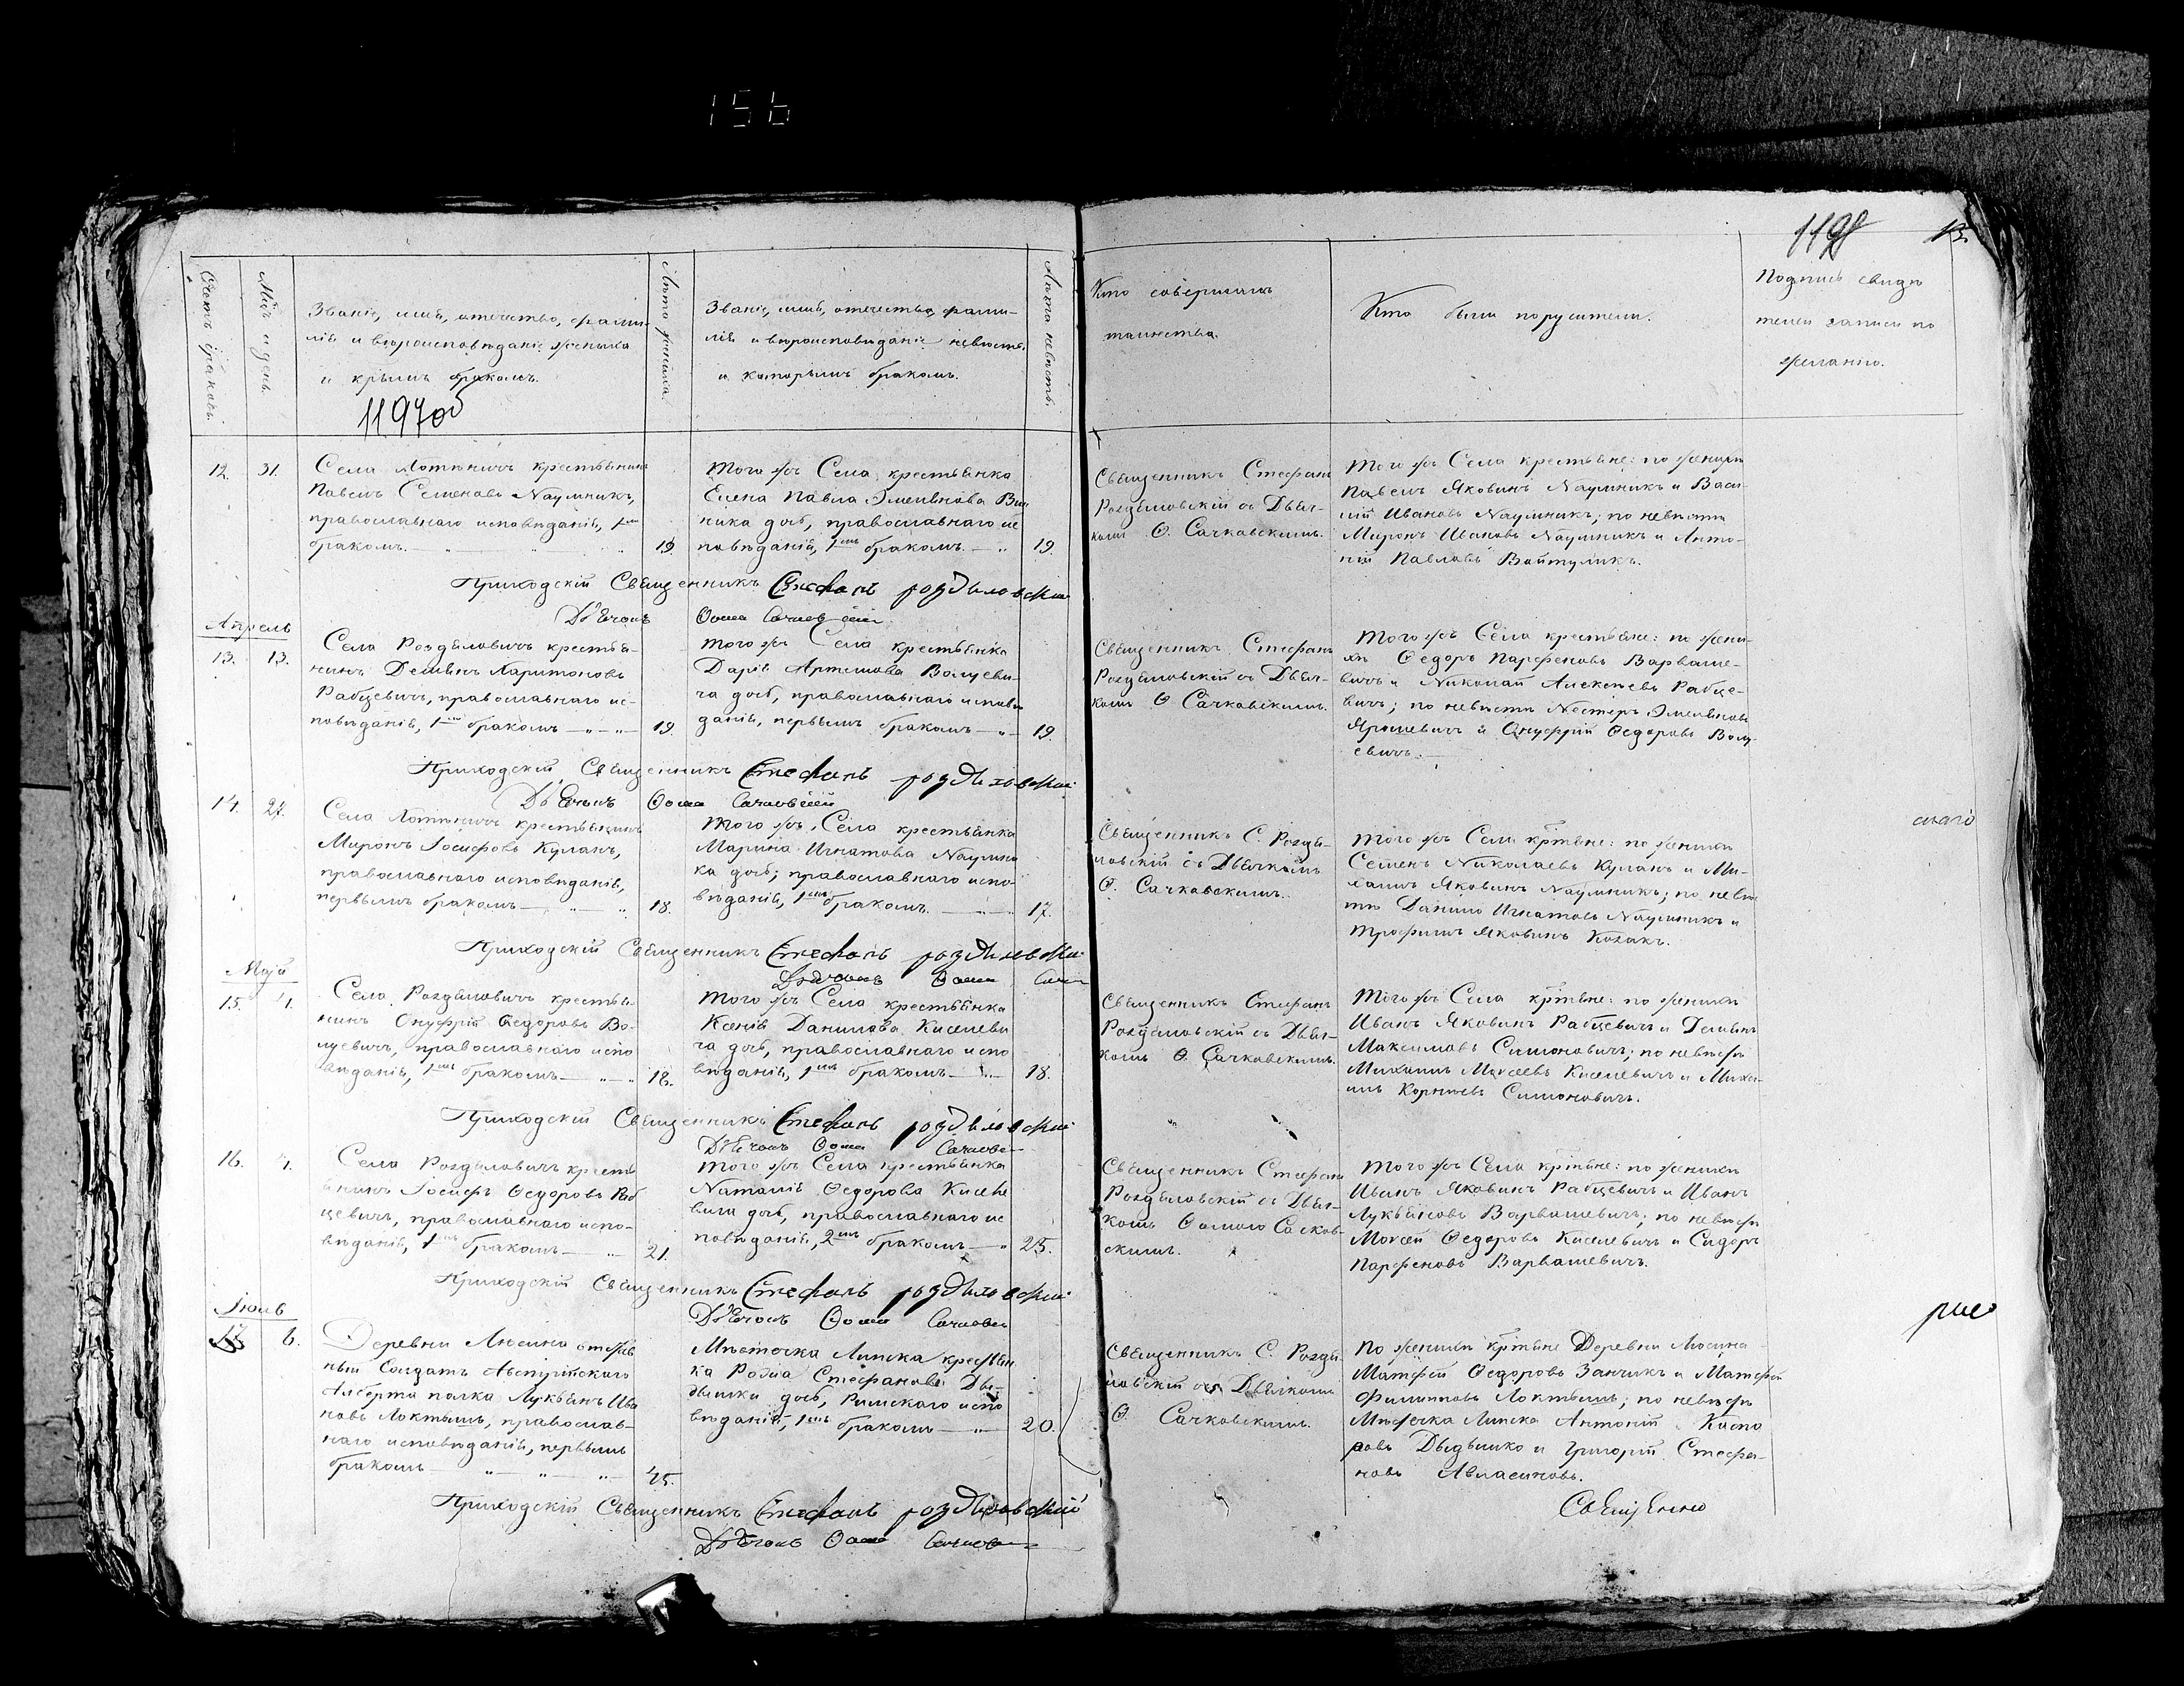 156
1197об
1198
Счетъ браковъ.
Мѣс. и день.
Званіе, имя, отечество, фами-
лія и вѣроисповѣданіе жениха
и крымъ бракомъ.
Лѣта жениха.
Званіе, имя, отечество, фами-
лія и вѣроисповѣданіе невѣсты
и которымъ бракомъ.
Лѣта невѣсты.
Кто совершалъ
таинство.
Кто были поручители.
Подпись свидѣ
телей записи по
желанію.
12. 31.
Села Лотвичъ крестьянинъ
Павелъ Семеновъ Наумникъ,
православнаго исповѣданія, 1мъ
бракомъ. 19.
Того жъ Села крестьянка
Елена Павла Емельянова Вой
ника дочь, православнаго ис
повѣданія, 1мъ бракомъ. 19.
Священникъ Стефанъ
Роздяловскій съ Дьяч-
комъ Ѳ. Сачковскимъ.
Того жъ Села крестьяне: по женихѣ
Павелъ Яковинъ Наумникъ и Васи-
лій Ивановъ Наумникъ; по невѣстѣ
Миронъ Ивановъ Наумникъ и Анто-
ній Павловъ Войтуликъ.
Приходскій Священникъ Стефанъ Роздяловскій
Дьячокъ Ѳома Сачковскій
Апрель
13. 13.
Села Роздяловичъ крестья-
нинъ Демьянъ Харитоновъ
Рабцевичъ, православнаго ис-
повѣданія, 1мъ бракомъ 19.
Того жъ Села крестьянка
Дарія Артемова Волуеви-
ча дочь, православнаго исповѣ
данія, первымъ бракомъ 19.
Священникъ Стефанъ
Роздяловскій съ Дьяч-
комъ Ѳ Сачковскимъ.
Того жъ Села крестьяне: по жени-
хѣ Ѳедоръ Парфеновъ Варваше-
вичъ и Николай Алексѣевъ Рабце-
вичъ; по невѣстѣ Нестеръ Емельяновъ
Ярошевичъ и Онуфрій Ѳедоровъ Волу-
евичъ.
Приходскій Священникъ Стефанъ Роздяловскій
Дьячокъ Ѳома Сачковскій
14. 27.
Села Лотвичъ крестьянинъ
Миронъ Іосифовъ Куланъ,
православнаго исповѣданія,
первымъ бракомъ 18.
Того жъ Села крестьянка
Марина Игнатова Наумни
ка дочь; православнаго испо-
вѣданія, 1мъ бракомъ. 17.
Священникъ С. Роздя-
ловскій съ Дьячкомъ
Ѳ. Сачковскимъ.
Того жъ Села крѣтьяне: по женихѣ
Семенъ Николаевъ Куланъ и Ми-
хаилъ Яковинъ Наумникъ; по невѣс
тѣ Данило Игнатовъ Наумникъ и
Трофимъ Яковинъ Козакъ.
Приходскій Священникъ Стефанъ Роздяловскій
Дьячокъ Ѳома Сачк
Маій
15. 4.
Села Роздяловичъ крестья-
нинъ Онуфрій Ѳедоровъ Во-
луевичъ, православнаго испо
вѣданія, 1мъ бракомъ 18.
Того жъ Села крестьянка
Ксенія Данилова Киселеви
ча дочь, православнаго испо
вѣданія, 1мъ бракомъ 18.
Священникъ Стефанъ
Роздяловскій съ Дьяч-
комъ Ѳ. Сачковскимъ.
Того жъ Села крѣтьяне: по женихѣ
Иванъ Яковинъ Рабцевичъ и Демьянъ
Максимовъ Симоновичъ; по невѣстѣ
Михаилъ Моисеевъ Киселевичъ и Миха-
илъ Корнѣевъ Симоновичъ.
Приходскій Священникъ Стефанъ Роздяловскій
Дьячокъ Ѳома Сачковс
16. 4.
Села Роздяловичъ кресть
янинъ Іосифъ Ѳедоровъ Раб
цевичъ, православнаго испо-
вѣданія, 1мъ бракомъ 21.
Того жъ Села крестьянка
Наталія Ѳедорова Киселе
вича дочь, православнаго ис
повѣданія, 2мъ бракомъ 25.
Священникъ Стефанъ
Роздяловскій съ Дьяч-
комъ Ѳомою Сачков-
скимъ.
Того жъ Села крѣтьяне: по женихѣ
Иванъ Яковинъ Рабцевичъ и Иванъ
Лукьяновъ Варвашевичъ; по невѣстѣ
Моисей Ѳедоровъ Киселевичъ и Сидоръ
Парфеновъ Варвашевичъ.
Приходскій Священникъ Стефанъ Роздяловскій
Дьячокъ Ѳома Сачковс
17 6.
Деревни Люсино отстав
ный Солдатъ Австрійскаго
Алберта полка Лукьянъ Ива
новъ Локтышъ, православ-
наго исповѣданія, первымъ
бракомъ 25.
Мѣстечка Липска крестьян
ка Розіа Стефанова Ды-
дышки дочь, Римскаго испо
вѣданія, 1мъ бракомъ 20.
Священникъ С. Роздя-
ловскій съ Дьячкомъ
Ѳ. Сачковскимъ.
По женихѣ крѣтьяне Деревни Люсина
Матѳей Ѳедоровъ Занчикъ и Матѳей
Филиповъ Локтышъ; по невѣстѣ
Мѣстечка Липска Антоній Каспо
ровъ Дыдышко и Григорій Стефа-
новъ Авласиновъ.
Приходскій Священникъ Стефанъ Роздяловскій
Дьячокъ Ѳома Сачковс
Священно